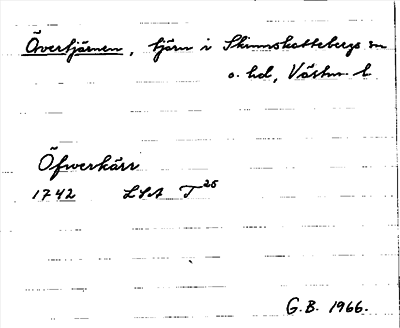 Övertjärnen, tjärn i Skinnskattebergs sn
o. hd, Västm. l.
Öfwerkärr
1742 LSA T 25
G.B. 1966.